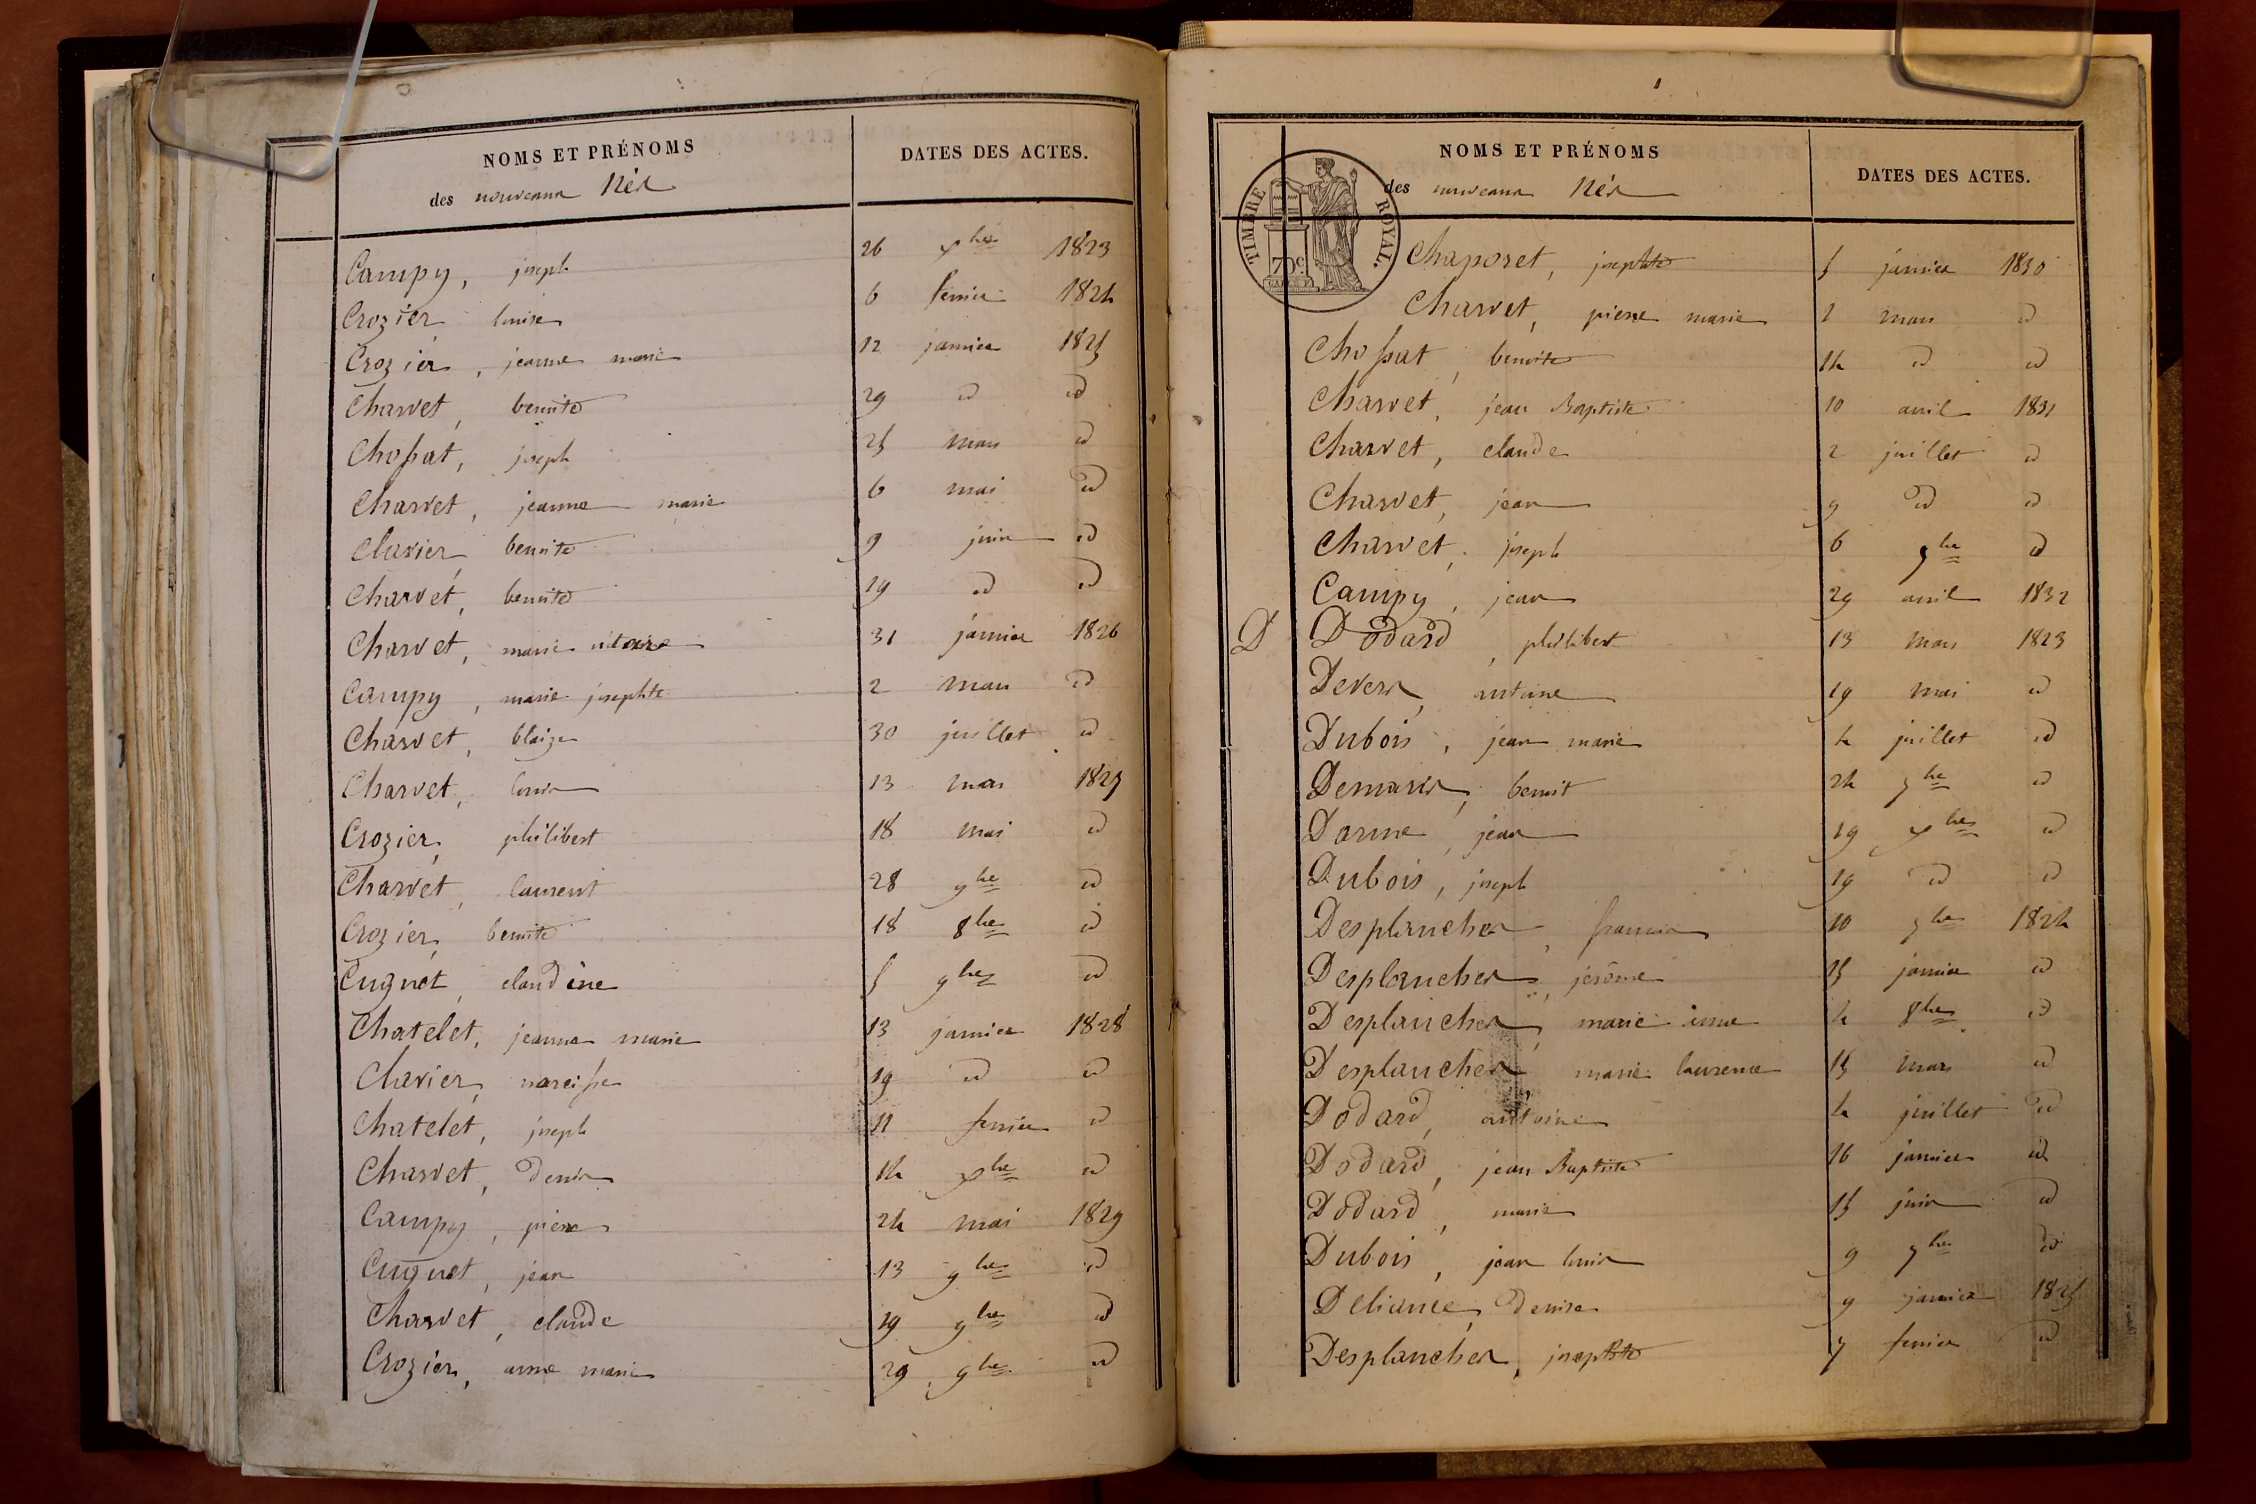 NOMS ET PRÉNOMS
des nouveaux Nés
DATES DES ACTES.
Campy, joseph 26 xbre 1823
Crozier louise 6 fevrier 1824
Crozier, jeanne marie 12 janvier 1825
Charvet, benoite 29 id id
Chossat, joseph 25 mars id
Charvet, jeanne marie 6 mai id
Clavier, benoite 9 juin id
Charvet, benoite 19 id id
Charvet, marie 31 janvier 1826
Campy, marie josephte 2 mars id
Charvet, blaize 30 juillet id
Charvet, louis 13 mars 1827
Crozier, philibert 18 mai id
Charvet, laurent 28 9bre id
Crozier, benoite 18 8bre id
Cugnet, claudine 5 9bre id
Chatelet, jeanne marie 13 janvier 1828
Clavier, narcisse 19 id id
Chatelet, joseph 11 fevrier id
Charvet, denis 14 xbre id
Campy, pierre 24 mai 1829
Cugnet, jean 13 9bre id
Charvet, claude 19 9bre id
Crozier, anne marie 29 9bre id
NOMS ET PRÉNOMS
des nouveaux Nés
DATES DES ACTES.
TIMBRE ROYAL.
70c
Chaporet, josephte 5 janvier 1830
Charvet, pierre marie 1 mars id
Chossat, benoite 14 id id
Charvet, jean Baptiste 10 avril 1831
Charvet, claude 2 juillet id
Charvet, jean 9 id id
Charvet, joseph 6 9bre id
Campy, jean 29 avril 1832
D Dodard, philibert 13 mars 1823
Devers, antoine 19 mai id
Dubois, jean marie 4 juillet id
Demars, benoit 24 7bre id
Darme, jean 19 xbre id
Dubois, joseph 19 id id
Desplanches, francois 10 7bre 1824
Desplanches, jérôme 15 janvier id
Desplanches, marie 4 8bre id
Desplanches, marie laurence 15 mars id
Dodard, antoine 4 juillet id
Dodard, jean Baptiste 16 janvier id
Dodard, marie 15 juin id
Dubois, jean louis 9 7bre id
Deliance, denise 9 janvier 1825
Desplanches, josephte 7 fevrier id